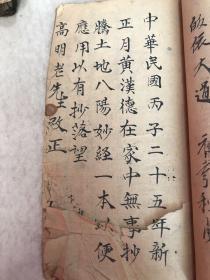 中華民國丙子二十五年新
正月黃漢德在家中無事抄
騰土地八陽妙經一本以便
應用以有抄落望
高明老先生改正
皈依大道